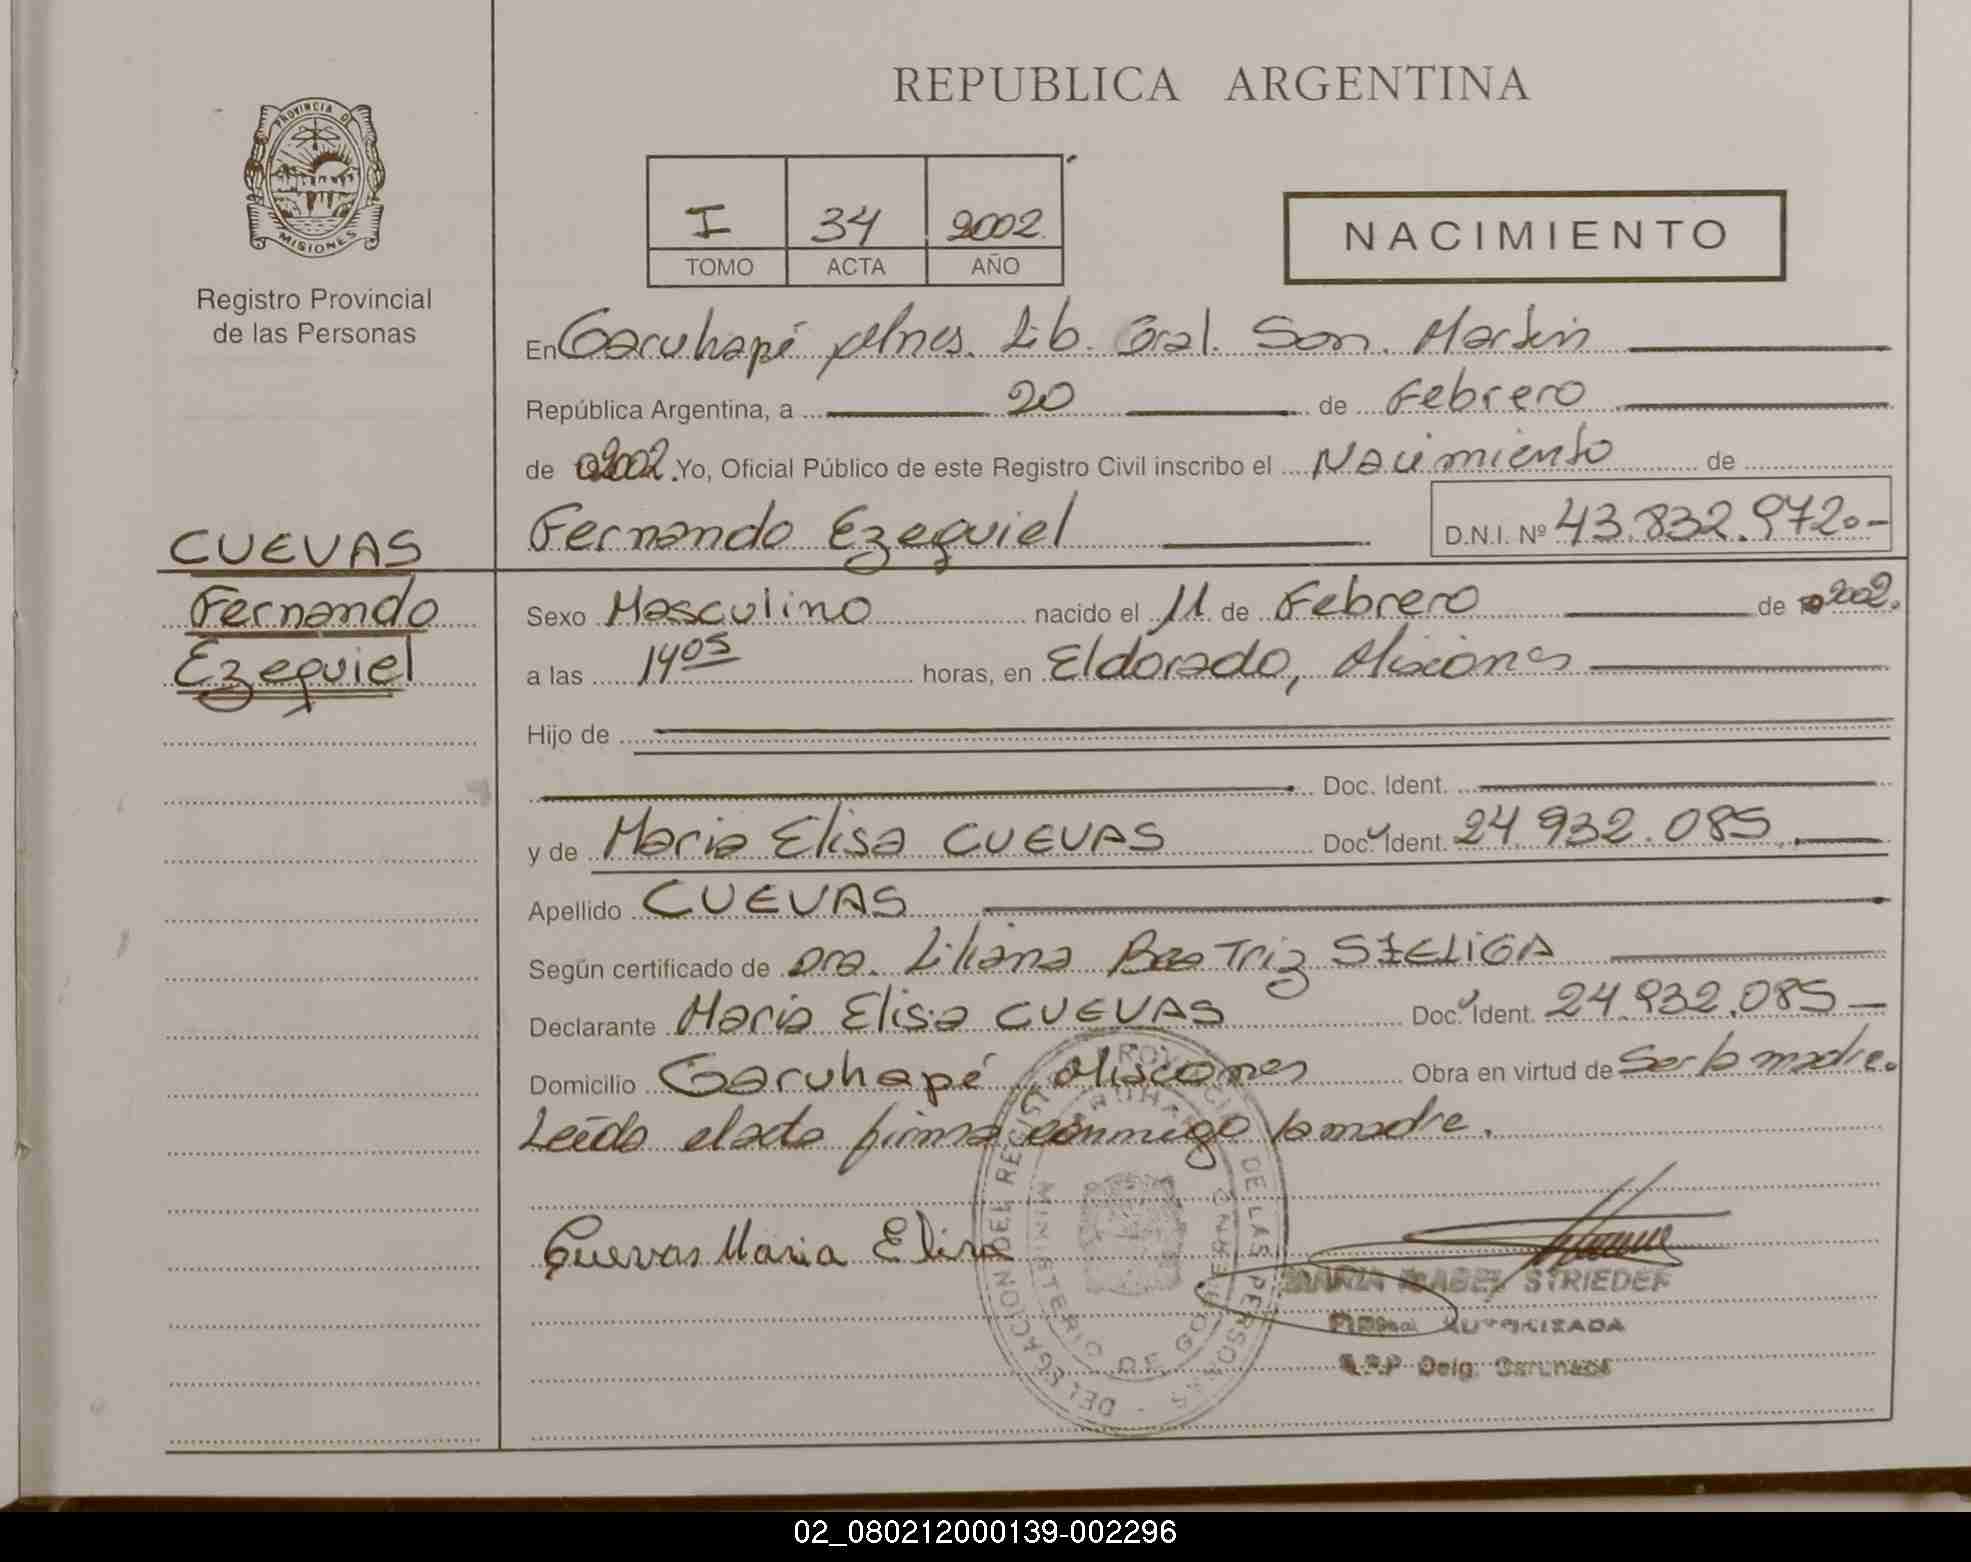 REPUBLICA ARGENTINA
PROVINCIA DE
MISIONES
Registro Provincial
de las Personas
I 34 2002
TOMO ACTA AÑO
NACIMIENTO
En Garuhapé Mnes. Lib. Gral. San. Martin
República Argentina, a 20 de Febrero
de 2002. Yo, Oficial Público de este Registro Civil inscribo el Nacimiento de
Fernando Ezequiel D.N.I. Nº 43.832.972.-
CUEVAS
Fernando
Ezequiel
Sexo Masculino nacido el 11 de Febrero de 2002.
a las 14 05 horas, en Eldorado, Misiones
Hijo de
Doc. Ident.
y de Maria Elisa CUEVAS Doc. Ident. 24.932.085
Apellido CUEVAS
Según certificado de Dra. Liliana Beatriz
Declarante Maria Elisa CUEVAS Doc. Ident. 24.932.085
Domicilio Garuhapé Misiones Obra en virtud de Ser la madre.
Leída el acta firma conmigo la madre.
Cuevas Maria Elisa
DELEGACION DEL REGISTRO PROVINCIAL DE LAS PERSONAS
MINISTERIO DE GOBIERNO
MARIA ISABEL STRIEDER
AUTORIZADA
Garuhape
02_080212000139-002296